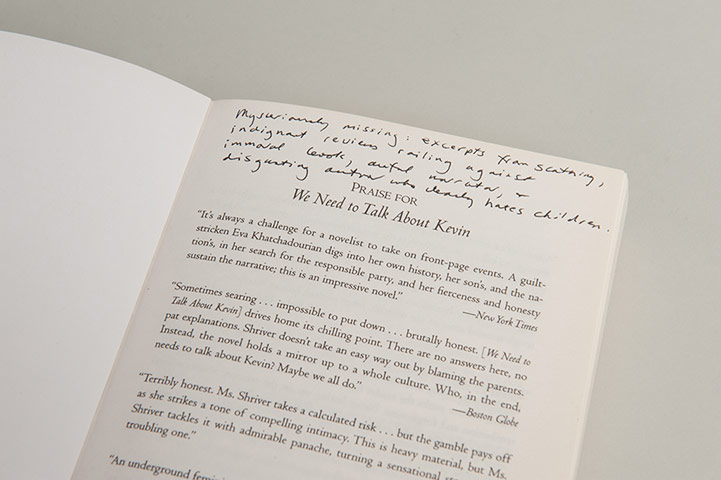 Mysteriously missing: excerpts from scathing,
indignant reviews railing against
immoral book, awful narrator, &
disgusting author who clearly hates children.
PRAISE FOR
We Need to Talk About Kevin
“It’s always a challenge for a novelist to take on front-page events. A guilt-
stricken Eva Khatchadourian digs into her own history, her son’s, and the na-
tion’s, in her search for the responsible party, and her fierceness and honesty
sustain the narrative; this is an impressive novel.”
—New York Times
“Sometimes searing . . . impossible to put down . . . brutally honest. [We Need to
Talk About Kevin] drives home its chilling point. There are no answers here, no
pat explanations. Shriver doesn’t take an easy way out by blaming the parents.
Instead, the novel holds a mirror up to a whole culture. Who, in the end,
needs to talk about Kevin? Maybe we all do.”
—Boston Globe
“Terribly honest. Ms. Shriver takes a calculated risk . . . but the gamble pays off
as she strikes a tone of compelling intimacy. This is heavy material, but Ms.
Shriver tackles it with admirable panache, turning a sensational
troubling one.”
“An underground